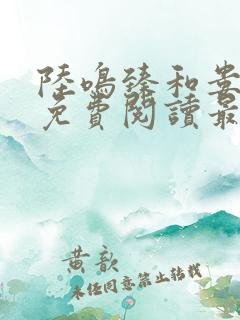 陸鳴臻和婁
免費閱讀最
黃歆
未經同意禁止轉載